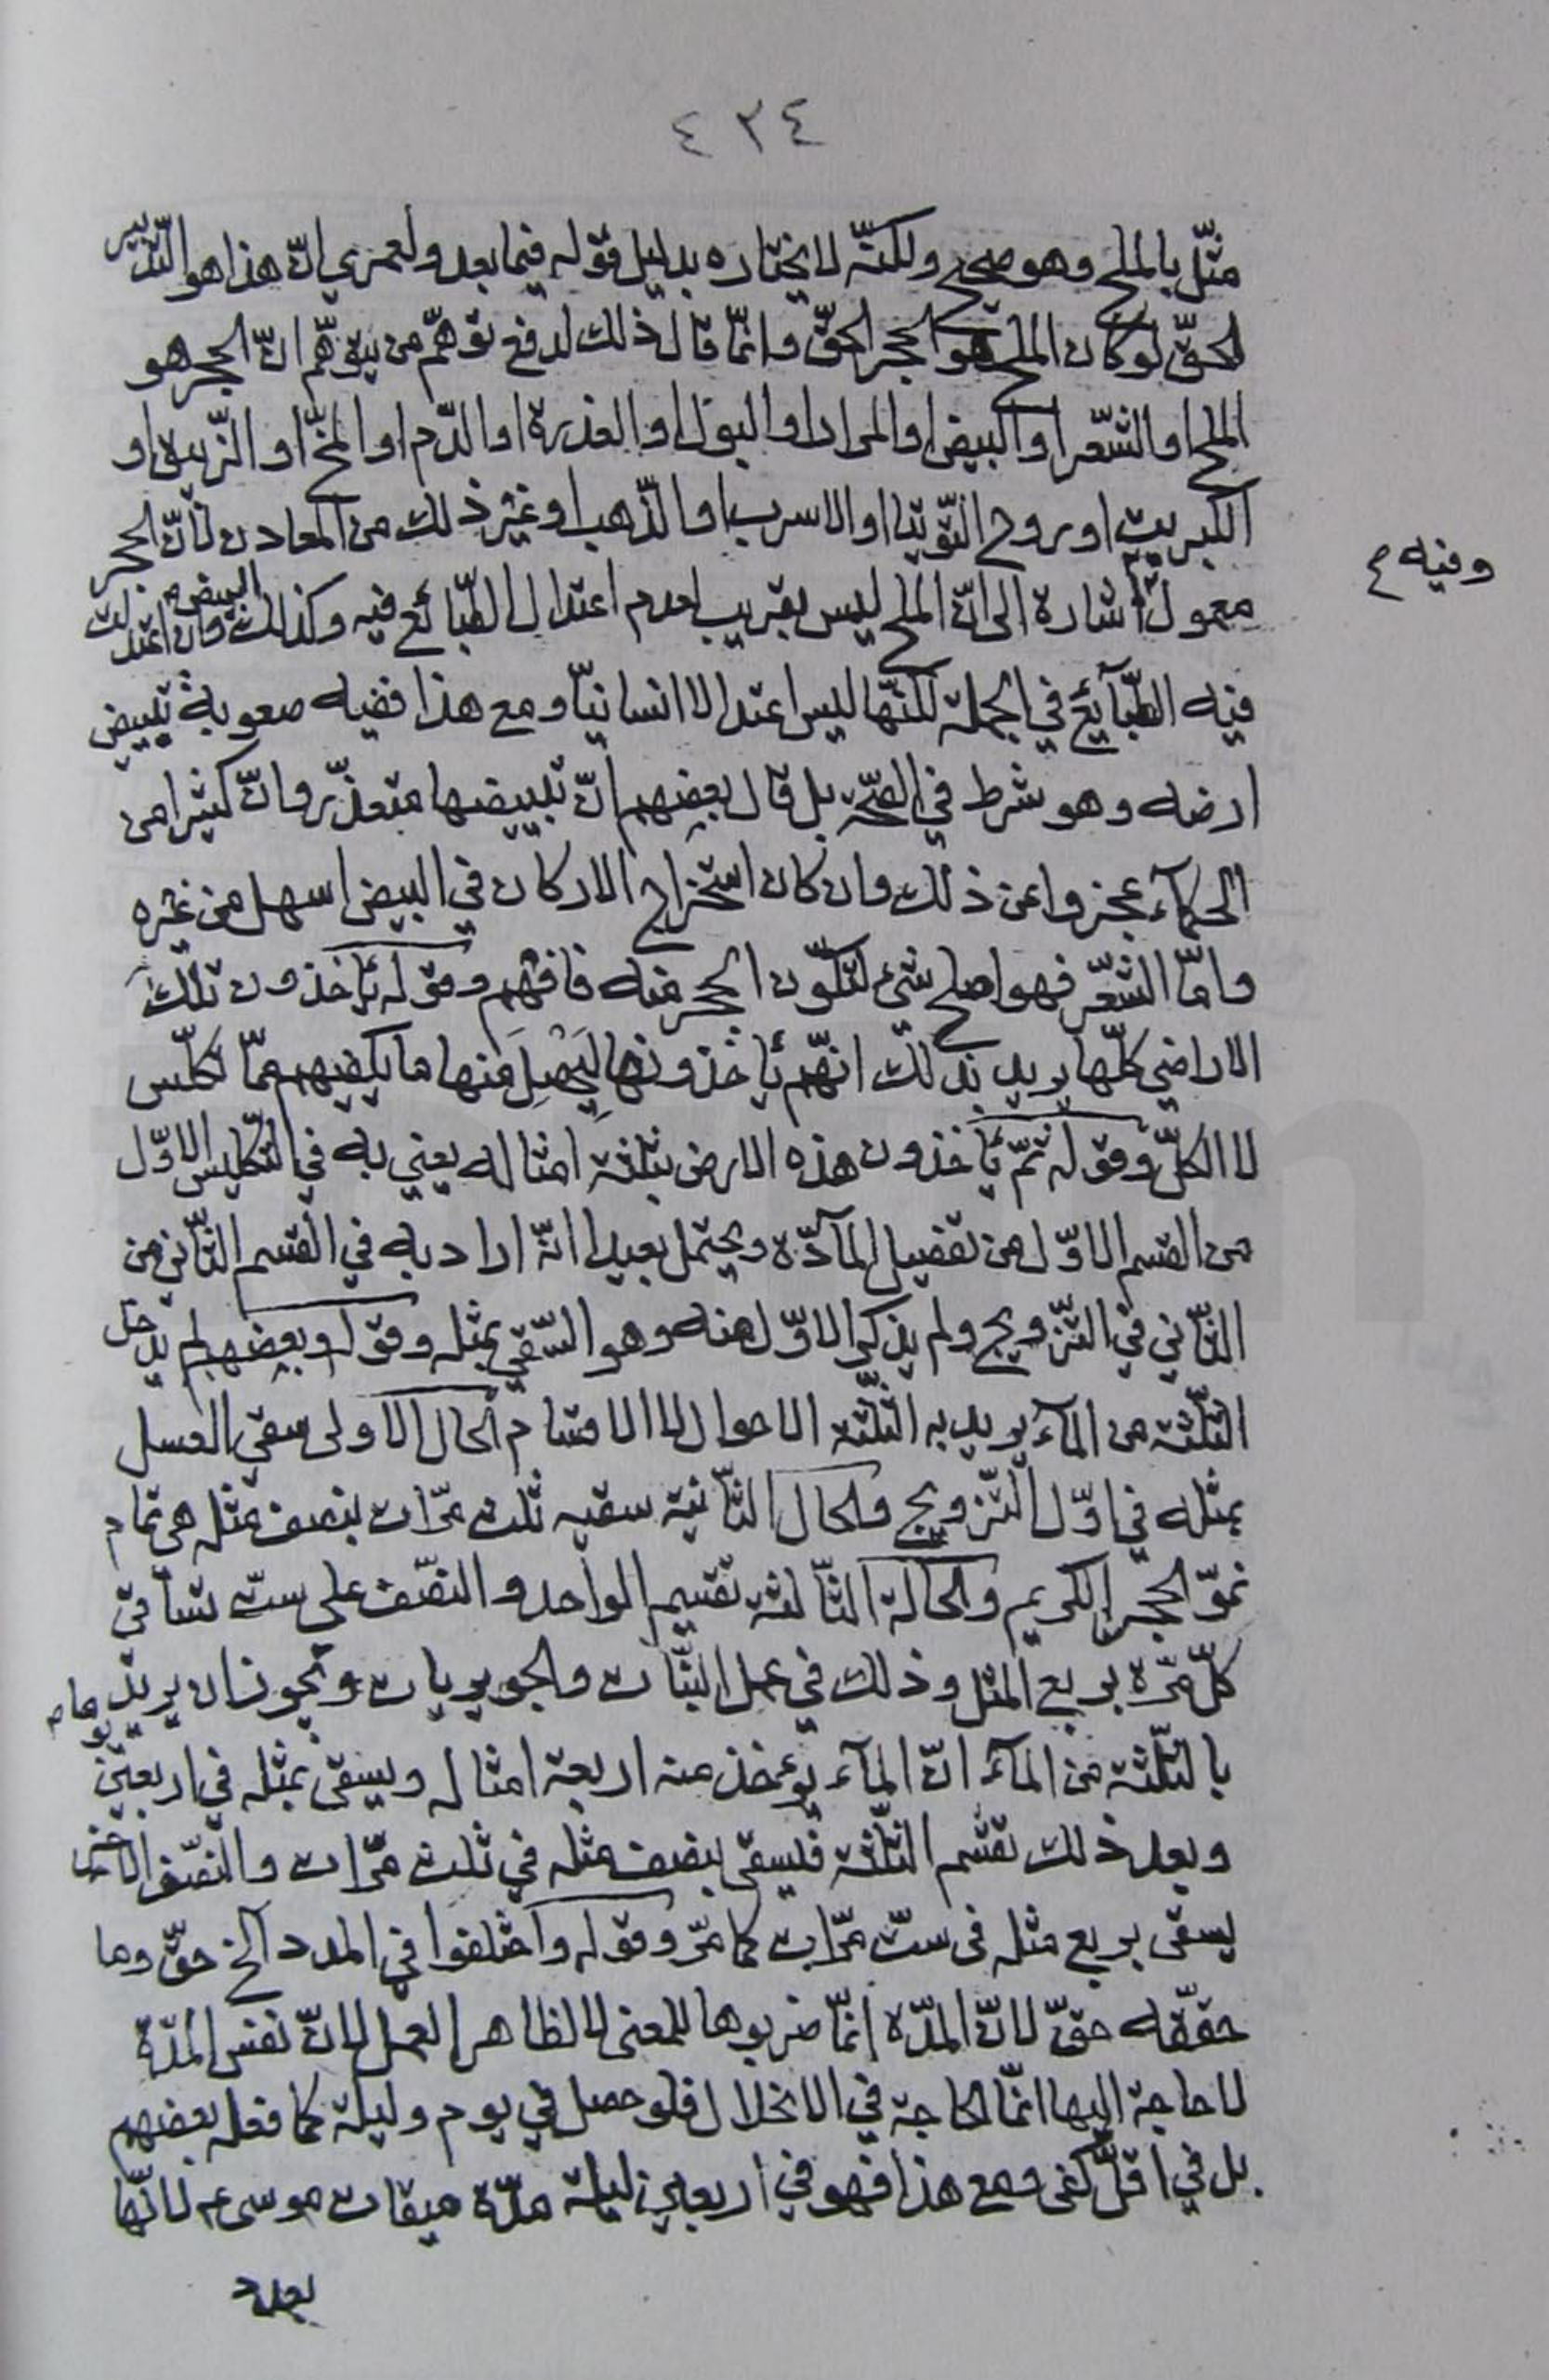 ٤٣٤
مثّل بالملح وهو صحيح ولكنّه لا يختاره بدليل قوله فيما بعد ولعمري انّ هذا هو التّدبير
الحقّ لو كان الملح هو الحجر الحقّ وانّما قال ذلك لدفع توهّم من يتوهّم انّ الحجر هو
الملح او الشّعر او البيض او المرار او البول او العذرة او الدّم او المخّ او الزّيبق او
الكبريت او روح التّوتيا او الاسرب او الذّهب او غير ذلك من المعادن لأنّ الحجر
وفيه م
معمول اشارة الى انّ الملح ليس بقريب لعدم اعتدال الطّبائع فيه وكذلك البيض وان اعتدلت
فيه الطّبآئع في الجملة لكنّها ليس اعتدالا انسانيّا ومع هذا ففيه صعوبة تبييض
ارضه وهو شرط في الصّحّة بل قال بعضهم انّ تبييضها متعذّر وانّ كثيرا من
الحكمآء عجزوا عن ذلك وان كان استخراج الاركان في البيض اسهل من غيره
وامّا الشّعر فهو اصلح شيء لتكوّن الحجر منه فافهم وقوله يأخذون تلك
الاراضي كلّها يريد بذلك انّهم يأخذونها ليحصل منها ما يكفيهم ممّا تكلّس
لا الكلّ وقوله ثمّ يأخذون هذه الارض بثلثة امثاله يعني به في التّكليس الاوّل
من القسم الاوّل من تفصيل المآدّة ويحتمل بعيدا انّه اراد به في القسم الثّاني من
الثّاني في التّزويج ولم يذكر الاوّل منه وهو السّقي بمثله وقوله وبعضهم لم يدخل
الثّلثة من المآء يريد به الثّلثة الاحوال لا الاقسام الحال الاولى سقي العسل
بمثله في اوّل التّزويج والحال الثّانية سقيه ثلث مرّات بنصف مثله هي تمام
نموّ الحجر الكريم والحالة الثّالثة تقسيم الواحد والنصف على ستّ تساقي
كلّ مرّة بربع المثل وذلك في عمل النّبات والجويريات ويجوز ان يريد
بالثّلثة من المآء انّ المآء يؤخذ منه اربعة امثاله ويسقى بمثله في اربعين يوما م
وبعد ذلك تقسم الثّلثة فليسقى بنصف مثله في ثلث مرّات والنّصف الاخر
يسقى بربع مثله في ستّ مرّات كما مرّ وقوله واختلفوا في المدد الخ حقّ وما
حقّقه حقّ لانّ المدّة انّما ضربوها للمعنى لا لظاهر العمل لانّ نفس المدّة
لا حاجة اليها انّما الحاجة في الانحلال فلو حصل في يوم وليلة كما فعله بعضهم
بل في اقلّ كفى ومع هذا فهو في اربعين ليلة مدّة ميقات موسى ع لانّها
بعدد